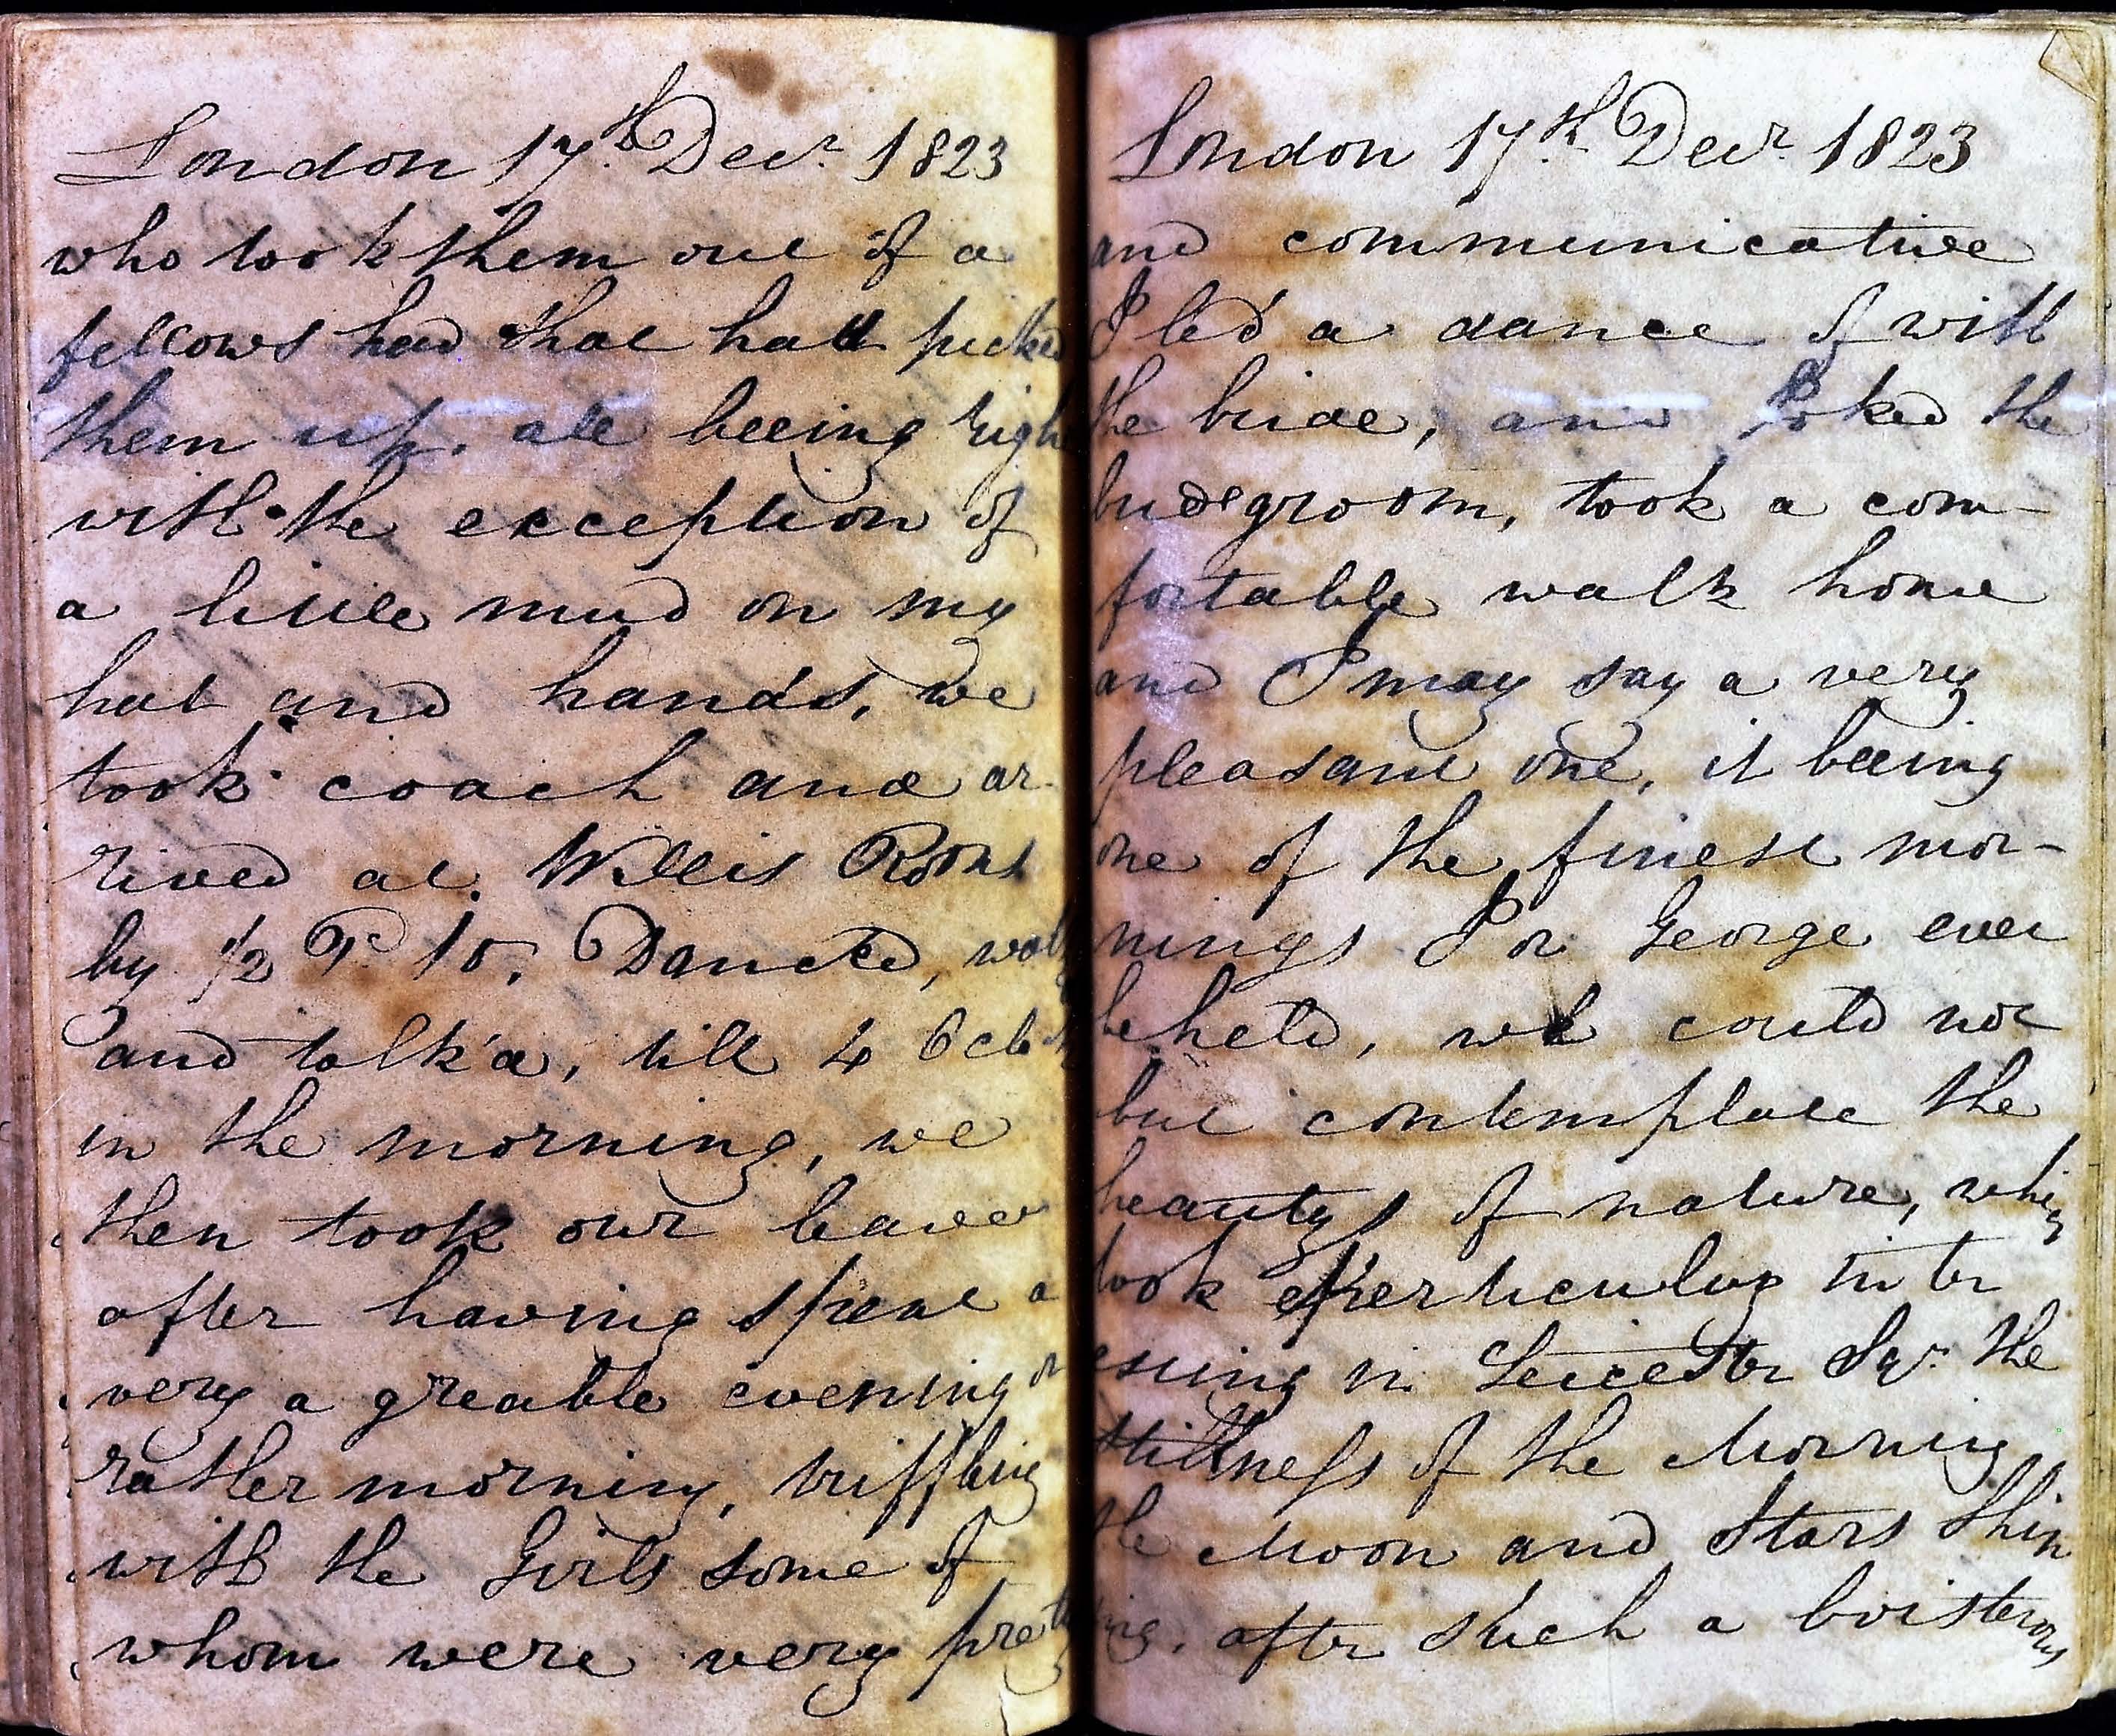 London 17th Decr. 1823
who took them out of a
fellows had that had picked
them up. all beeing right
with the exception of
a little mud on my
hat and hands, we
took coach and ar-
rived at Willis Rooms
by 1/2 P. 10, Danced,
and talk'd, till 4 Oclock
in the morning, we
then took our leave
after having spent a
very a greable evening or
rather morning, triffling
with the Girls some of
whom were very pretty
London 17th Decr. 1823
and communicative
I led a dance of with
the bride, and joked the
bridegroom, took a com-
fortable walk home
and I may say a very
pleasant one, it beeing
one of the finest mor-
nings I or George ever
beheld, we could not
but contemplate the
beautys of nature, which
look perticulup in tr
esting in Leicester Sqr. the
stillness of the Morning
the Moon and Stars shin
ing. after such a boisterous